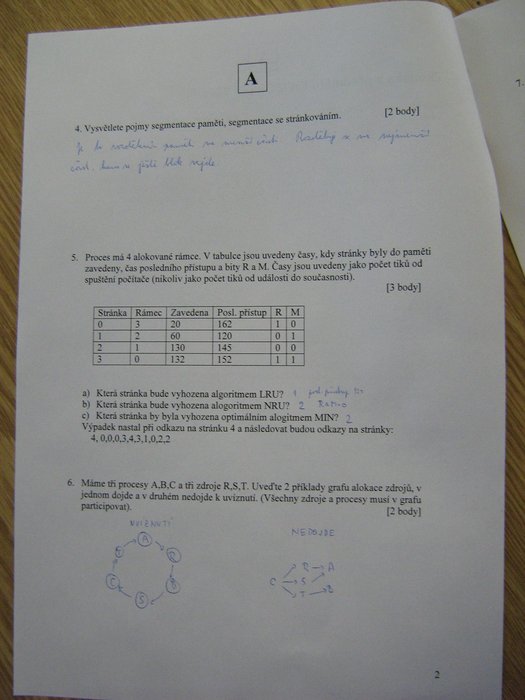 A
4. Vysvětlete pojmy segmentace paměti, segmentace se stránkováním.
[2 body]
Je to rozdělení paměti na menší části. Rozděluje se na nejmenší
5. Proces má 4 alokované rámce. V tabulce jsou uvedeny časy, kdy stránky byly do paměti
zavedeny, čas posledního přístupu a bity R a M. Časy jsou uvedeny jako počet tiků od
spuštění počítače (nikoliv jako počet tiků od události do současnosti).
[3 body]
Stránka Rámec Zavedena Posl. přístup R M
0 3 20 162 1 0
1 2 60 120 0 1
2 1 130 145 0 0
3 0 132 152 1 1
a) Která stránka bude vyhozena algoritmem LRU? 1
b) Která stránka bude vyhozena alogoritmem NRU? 2 R=M=0
c) Která stránka by byla vyhozena optimálním alogitmem MIN? 2
Výpadek nastal při odkazu na stránku 4 a následovat budou odkazy na stránky:
4, 0,0,0,3,4,3,1,0,2,2
6. Máme tři procesy A,B,C a tři zdroje R,S,T. Uveďte 2 příklady grafu alokace zdrojů, v
jednom dojde a v druhém nedojde k uvíznutí. (Všechny zdroje a procesy musí v grafu
participovat).
[2 body]
UVÍZNUTÍ
NEDOJDE
A
T R
C B
S
R A
C S
T B
2